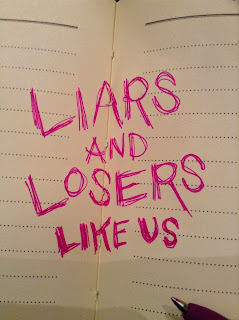 LIARS
AND
LOSERS
LIKE US